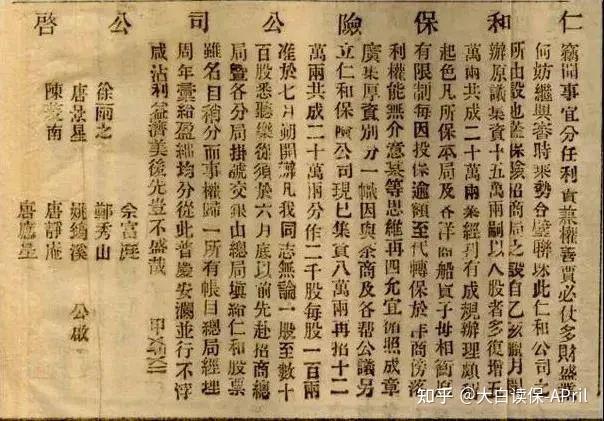 仁和保險公司公啓
竊聞事宜分任利責兼權善賈必仗多財盛業
何妨繼與審時乘勢合璧聯珠此仁和公司之
所由設也蓋保險招商局之設自乙亥臘月開
辦原議集資十五萬兩嗣以入股者多復增五
萬兩共成二十萬兩業經刊有成規辦理頗利
起色凡所保本局及各洋商船貨子母相衡均
有限制每因投保逾額至代轉保於洋商傍落
利權能無介意某等思維再四允宜循照成章
廣集厚資別分一幟因與茶商及各幫公議另
立仁和保險公司現已集資八萬兩再招十二
萬兩共成二十萬兩分作二千股每股一百兩
准於七月朔開辦凡我同志無論一股至數十
百股悉聽樂從須於六月底以前先赴招商總
局暨各分局掛號交銀由總局填給仁和股票
雖名目稍分而事權歸一所有帳目總局經理
周年彙給盈絀均分從此普慶安瀾並行不悖
咸沾利益濟美後先豈不盛哉
余富庭
徐雨之 鄭秀山
唐景星 姚鈞溪 公啟
陳菱南 唐靜庵
唐應星
知乎 @大白读保-APril